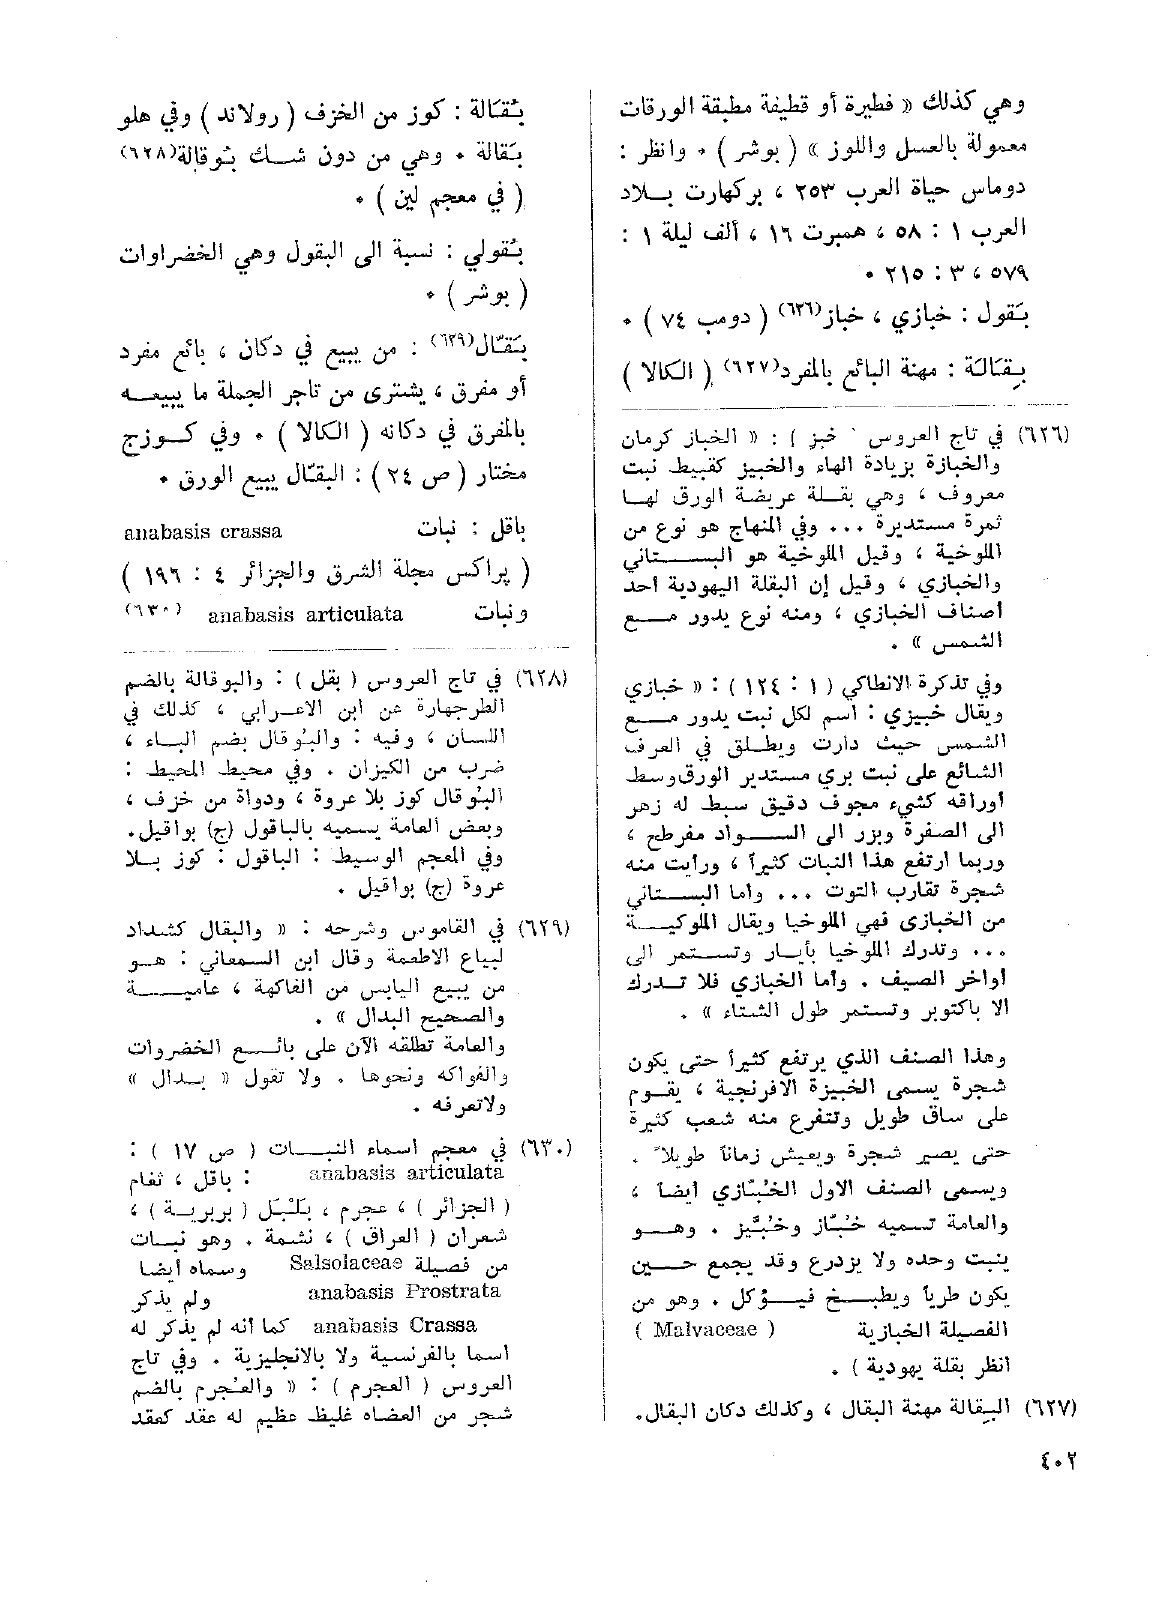 وهي كذلك « فطيرة أو قطيفة مطبقة الورقات
معمولة بالعسل واللوز » ( بوشر ) ٠ وانظر :
دوماس حياة العرب ٢٥٣ ، بركهارت بلاد
العرب ١ : ٥٨ ، همبرت ١٦ ، ألف ليلة ١ :
٥٧٩ ، ٣ : ٢١٥ ٠
بَقول : خبازي ، خباز(٦٢٦) ( دومب ٧٤ ) ٠
بِقَالَة : مهنة البائع بالمفرد(٦٢٧) ( الكالا )
(٦٢٦) في تاج العروس ( خبز ) : « الخباز كرمان
والخبازة بزيادة الهاء والخبيز كقبيط نبت
معروف ، وهي بقلة عريضة الورق لها
ثمرة مستديرة ... وفي المنهاج هو نوع من
الملوخية ، وقيل الملوخية هو البستاني
والخبازي ، وقيل إن البقلة اليهودية أحد
أصناف الخبازي ، ومنه نوع يدور مع
الشمس » .
وفي تذكرة الانطاكي ( ١ : ١٢٤ ) : « خبازي
ويقال خبيزي : اسم لكل نبت يدور مع
الشمس حيث دارت ويطلق في العرف
الشائع على نبت بري مستدير الورق وسط
أوراقه كشيء مجوف دقيق سبط له زهر
الى الصفرة وبزر الى السواد مفرطح ،
وربما ارتفع هذا النبات كثيراً ، ورأيت منه
شجرة تقارب التوت ... وأما البستاني
من الخبازى فهي الملوخيا ويقال الملوكية
... وتدرك الملوخيا بأيار وتستمر الى
أواخر الصيف . وأما الخبازي فلا تدرك
الا باكتوبر وتستمر طول الشتاء » .
وهذا الصنف الذي يرتفع كثيراً حتى يكون
شجرة يسمى الخبيزة الافرنجية ، يقوم
على ساق طويل وتتفرع منه شعب كثيرة
حتى يصير شجرة ويعيش زماناً طويلاً .
ويسمى الصنف الاول الخُبّازي أيضاً ،
والعامة تسميه خُبَّاز وخُبَّيز . وهو
ينبت وحده ولا يزدرع وقد يجمع حين
يكون طرياً ويطبخ فيؤكل . وهو من
الفصيلة الخبازية ( Malvaceae )
انظر بقلة يهودية ) .
(٦٢٧) البِقالة مهنة البقال ، وكذلك دكان البقال.
بُقَالة : كوز من الخزف ( رولاند ) وفي هلو
بَقالة ٠ وهي من دون شك بُوقالة(٦٢٨)
( في معجم لين ) ٠
بُقولي : نسبة الى البقول وهي الخضراوات
( بوشر ) ٠
بَقّال(٦٢٩) : من يبيع في دكان ، بائع مفرد
أو مفرق ، يشترى من تاجر الجملة ما يبيعه
بالمفرق في دكانه ( الكالا ) ٠ وفي كوزج
مختار ( ص ٢٤ ) : البقّال يبيع الورق ٠
باقل : نبات anabasis crassa
( پراكس مجلة الشرق والجزائر ٤ : ١٩٦ )
ونبات anabasis articulata (٦٣٠)
(٦٢٨) في تاج العروس ( بقل ) : والبوقالة بالضم
الطرجهارة عن ابن الاعرابي ، كذلك في
اللسان ، وفيه : والبُوقال بضم الباء ،
ضرب من الكيزان . وفي محيط المحيط :
البُوقال كوز بلا عروة ، ودواة من خزف ،
وبعض العامة يسميه بالباقول (ج) بواقيل.
وفي المعجم الوسيط : الباقول : كوز بلا
عروة (ج) بواقيل .
(٦٢٩) في القاموس وشرحه : « والبقال كشداد
لبياع الاطعمة وقال ابن السمعاني : هو
من يبيع اليابس من الفاكهة ، عامية
والصحيح البدال » .
والعامة تطلقه الآن على بائع الخضروات
والفواكه ونحوها . ولا تقول « بدال »
ولاتعرفه .
(٦٣٠) في معجم أسماء النبات ( ص ١٧ ) :
anabasis articulata : باقل ، ثغام
( الجزائر ) ، عجرم ، بَلْبَل ( بربرية ) ،
شعران ( العراق ) ، نشمة . وهو نبات
من فصيلة Salsolaceae وسماه أيضا
anabasis Prostrata ولم يذكر
anabasis Crassa كما أنه لم يذكر له
اسما بالفرنسية ولا بالانجليزية . وفي تاج
العروس ( العجرم ) : « والعُجرم بالضم
شجر من العضاه غليظ عظيم له عقد كعقد
٤٠٢